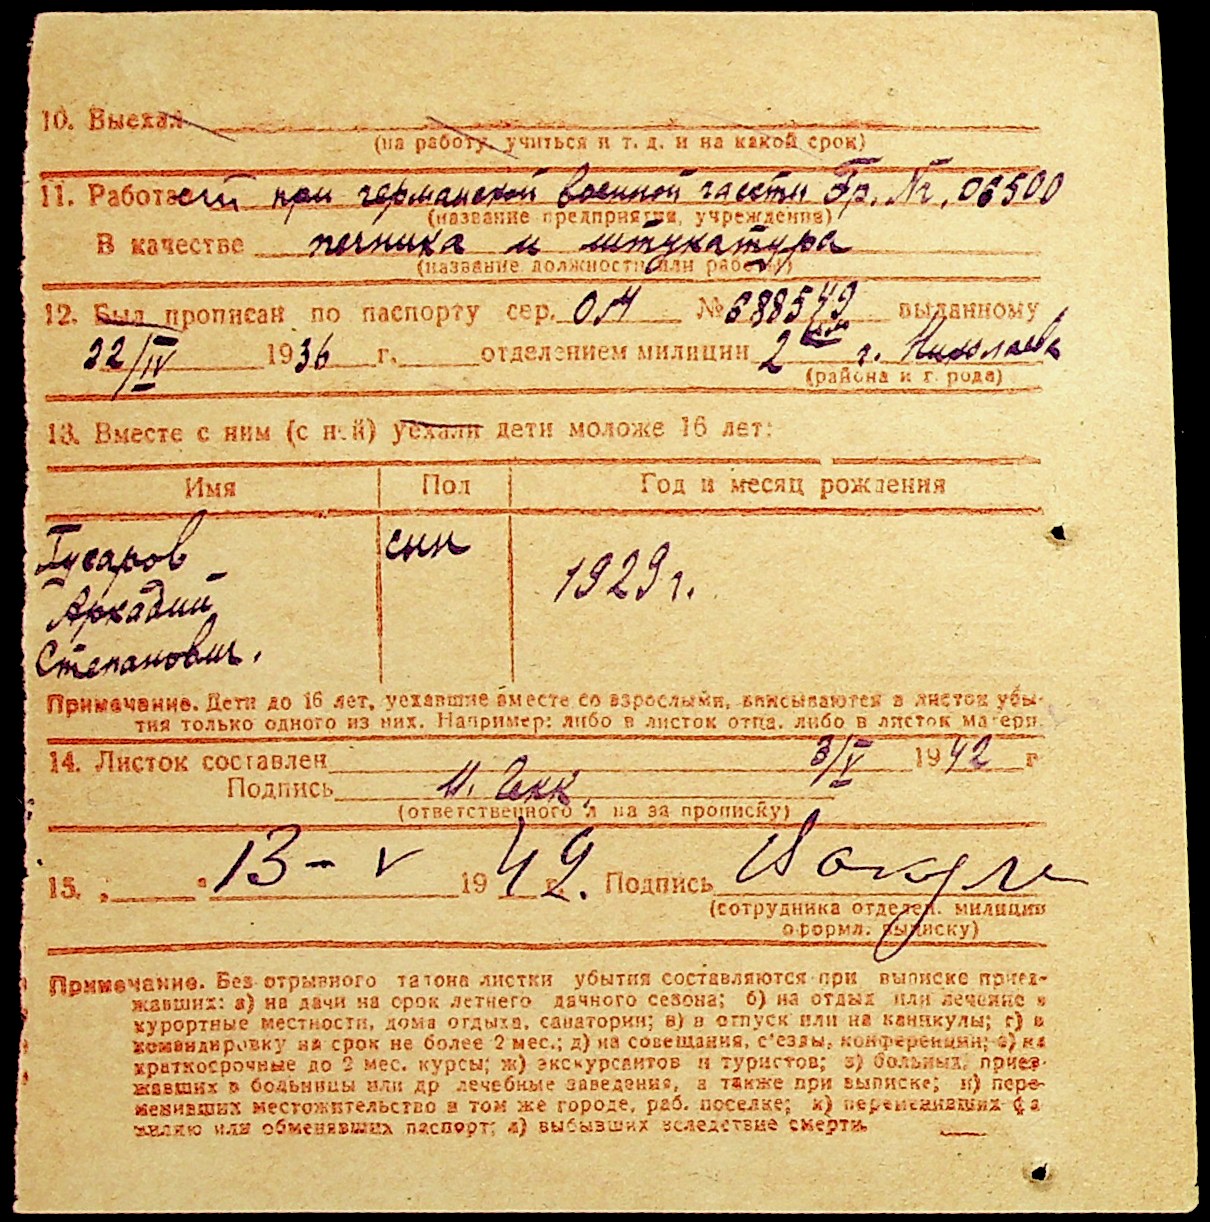 10. Выехал
(на работу, учиться и т. д. и на какой срок)
11. Работает при германской военной части Гр. Nr. 06500
(название предприятия, учреждения)
В качестве печника и штукатура
(название должности или работы)
12. Был прописан по паспорту сер. ОМ № 688549 выданному
22/IV 1936 г. отделением милиции 2 г. Николаева
(района и города)
13. Вместе с ним (с ней) уехали дети моложе 16 лет:
Имя Пол Год и месяц рождения
Гусаров сын
1929 г.
Аркадий
Степанович.
Примечание. Дети до 16 лет, уехавшие вместе со взрослыми, вписываются в листок убы-
тия только одного из них. Например: либо в листок отца, либо в листок матери.
14. Листок составлен 3/V 1942 г
Подпись
(ответственного л на за прописку)
15. „ “ 13-V 1942 г. Подпись
(сотрудника отделен. милиции
оформл. выписку)
Примечание. Без отрывного талона листки убытия составляются при выписке приез-
жавших: а) на дачи на срок летнего дачного сезона; б) на отдых или лечение в
курортные местности, дома отдыха, санатории; в) в отпуск или на каникулы; г) в
командировку на срок не более 2 мес.; д) на совещания, с'езды, конференции; е) на
краткосрочные до 2 мес. курсы; ж) экскурсантов и туристов; з) больных, приез-
жавших в больницы или др лечебные заведения, а также при выписке; и) пере-
менивших местожительство в том же городе, раб. поселке; к) переменивших фа
милию или обменявших паспорт; л) выбывших вследствие смерти.